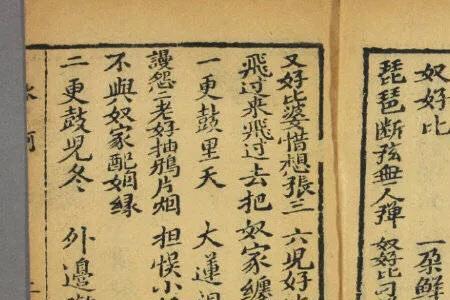 奴好比 一朵鮮
琵琶断弦無人彈 奴好比
又好比婆惜想張三 六児好
飛过来飛过去把奴家纏
一更鼓里天 大蓮
謾怨二老好抽鴉片烟 担悮小
不與奴家配姻緣
二更鼓児冬 外邊